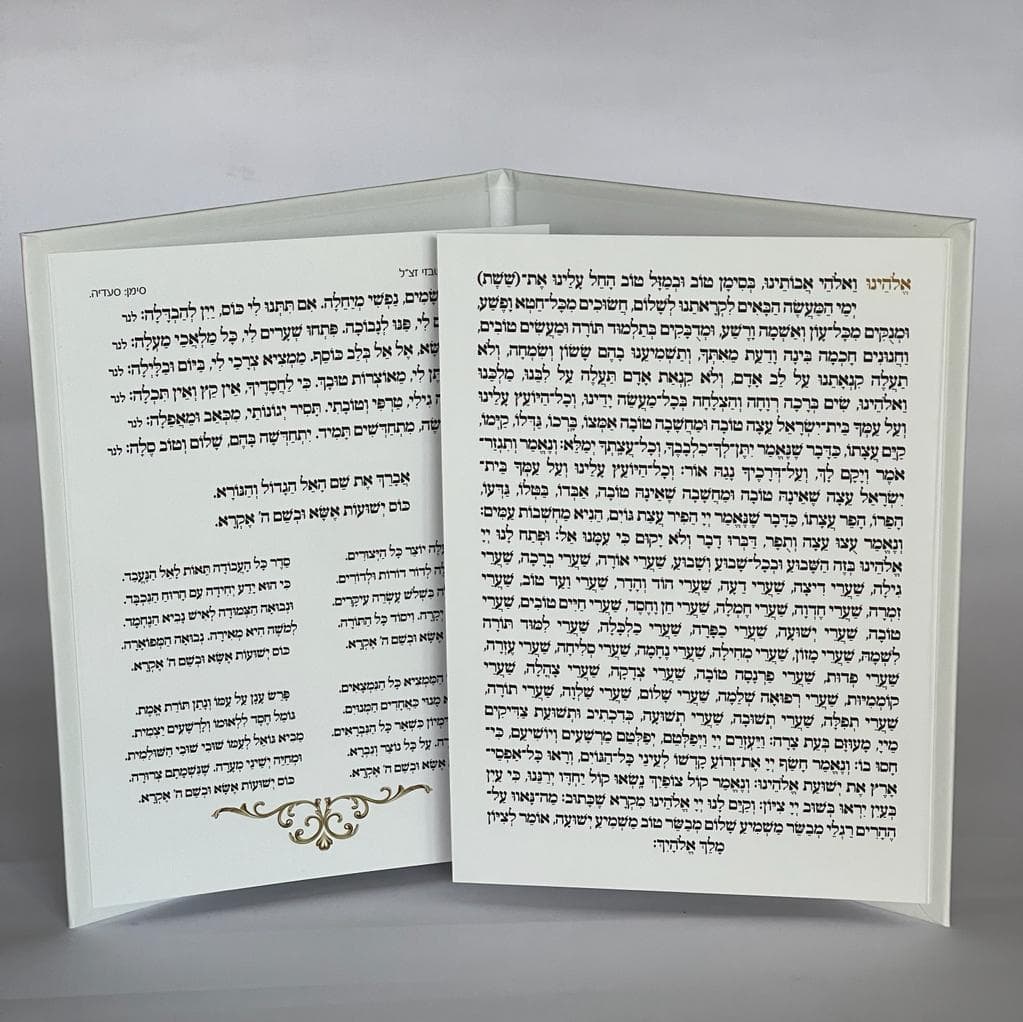 אֱלֹהֵינוּ וֵאלֹהֵי אֲבוֹתֵינוּ, בְּסִימָן טוֹב וּבְמַזָּל טוֹב הָחֵל עָלֵינוּ אֶת־(שֵׁשֶׁת)
יְמֵי הַמַּעֲשֶׂה הַבָּאִים לִקְרָאתֵנוּ לְשָׁלוֹם, חֲשׂוּכִים מִכָּל־חֵטְא וָפֶשַׁע,
וּמְנֻקִּים מִכָּל־עָוֺן וְאַשְׁמָה וָרֶשַׁע, וּמְדֻבָּקִים בְּתַלְמוּד תּוֹרָה וּמַעֲשִׂים טוֹבִים,
וַחֲנוּנִים חָכְמָה בִּינָה וָדַעַת מֵאִתָּךְ, וְתַשְׁמִיעֵנוּ בָהֶם שָׂשׂוֹן וְשִׂמְחָה, וְלֹא
תַעֲלֶה קִנְאָתֵנוּ עַל לֵב אָדָם, וְלֹא קִנְאַת אָדָם תַּעֲלֶה עַל לִבֵּנוּ, מַלְכֵּנוּ
וֵאלֹהֵינוּ, שִׂים בְּרָכָה רְוָחָה וְהַצְלָחָה בְּכָל־מַעֲשֵׂה יָדֵינוּ, וְכָל־הַיּוֹעֵץ עָלֵינוּ
וְעַל עַמְּךָ בֵּית־יִשְׂרָאֵל עֵצָה טוֹבָה וּמַחֲשָׁבָה טוֹבָה אַמְּצוֹ, בָּרְכוֹ, גַּדְּלוֹ, קַיְּמוֹ,
קַיֵּם עֲצָתוֹ, כַּדָּבָר שֶׁנֶּאֱמַר יִתֶּן־לְךָ־כִלְבָבֶךָ, וְכָל־עֲצָתְךָ יְמַלֵּא: וְנֶאֱמַר וְתִגְזַר־
אֹמֶר וְיָקָם לָךְ, וְעַל־דְּרָכֶיךָ נָגַהּ אוֹר: וְכָל־הַיּוֹעֵץ עָלֵינוּ וְעַל עַמְּךָ בֵּית־
יִשְׂרָאֵל עֵצָה שֶׁאֵינָהּ טוֹבָה וּמַחֲשָׁבָה שֶׁאֵינָהּ טוֹבָה, אַבְּדוֹ, בַּטְּלוֹ, גַּדְּעוֹ,
הֲפֵרוֹ, הָפֵר עֲצָתוֹ, כַּדָּבָר שֶׁנֶּאֱמַר יְיָ הֵפִיר עֲצַת גּוֹיִם, הֵנִיא מַחְשְׁבוֹת עַמִּים:
וְנֶאֱמַר עֻצוּ עֵצָה וְתֻפָר, דַּבְּרוּ דָבָר וְלֹא יָקוּם כִּי עִמָּנוּ אֵל: וּפְתַח לָנוּ יְיָ
אֱלֹהֵינוּ בְּזֶה הַשָּׁבוּעַ וּבְכָל־שָׁבוּעַ וְשָׁבוּעַ, שַׁעֲרֵי אוֹרָה, שַׁעֲרֵי בְרָכָה, שַׁעֲרֵי
גִילָה, שַׁעֲרֵי דִיצָה, שַׁעֲרֵי דֵעָה, שַׁעֲרֵי הוֹד וְהָדָר, שַׁעֲרֵי וַעַד טוֹב, שַׁעֲרֵי
זִמְרָה, שַׁעֲרֵי חֶדְוָה, שַׁעֲרֵי חֶמְלָה, שַׁעֲרֵי חֵן וָחֶסֶד, שַׁעֲרֵי חַיִּים טוֹבִים, שַׁעֲרֵי
טוֹבָה, שַׁעֲרֵי יְשׁוּעָה, שַׁעֲרֵי כַפָּרָה, שַׁעֲרֵי כַלְכָּלָה, שַׁעֲרֵי לִמּוּד תּוֹרָה
לִשְׁמָהּ, שַׁעֲרֵי מָזוֹן, שַׁעֲרֵי מְחִילָה, שַׁעֲרֵי נֶחָמָה, שַׁעֲרֵי סְלִיחָה, שַׁעֲרֵי עֶזְרָה,
שַׁעֲרֵי פְדוּת, שַׁעֲרֵי פַרְנָסָה טוֹבָה, שַׁעֲרֵי צְדָקָה, שַׁעֲרֵי צָהֳלָה, שַׁעֲרֵי
קוֹמְמִיּוּת, שַׁעֲרֵי רְפוּאָה שְׁלֵמָה, שַׁעֲרֵי שָׁלוֹם, שַׁעֲרֵי שַׁלְוָה, שַׁעֲרֵי תוֹרָה,
שַׁעֲרֵי תְפִלָּה, שַׁעֲרֵי תְשׁוּבָה, שַׁעֲרֵי תְשׁוּעָה, כְּדִכְתִיב וּתְשׁוּעַת צַדִּיקִים
מֵיְיָ, מָעוּזָּם בְּעֵת צָרָה: וַיַּעְזְרֵם יְיָ וַיְפַלְּטֵם, יְפַלְּטֵם מֵרְשָׁעִים וְיוֹשִׁיעֵם, כִּי־
חָסוּ בוֹ: וְנֶאֱמַר חָשַׂף יְיָ אֶת־זְרוֹעַ קָדְשׁוֹ לְעֵינֵי כָּל־הַגּוֹיִם, וְרָאוּ כָּל־אַפְסֵי־
אָרֶץ אֵת יְשׁוּעַת אֱלֹהֵינוּ: וְנֶאֱמַר קוֹל צוֹפַיִךְ נָשְׂאוּ קוֹל יַחְדָּו יְרַנֵּנוּ, כִּי עַיִן
בְּעַיִן יִרְאוּ בְּשׁוּב יְיָ צִיּוֹן: וְקַיֵּם לָנוּ יְיָ אֱלֹהֵינוּ מִקְרָא שֶׁכָּתוּב: מַה־נָּאווּ עַל־
הֶהָרִים רַגְלֵי מְבַשֵּׂר מַשְׁמִיעַ שָׁלוֹם מְבַשֵּׂר טוֹב מַשְׁמִיעַ יְשׁוּעָה, אוֹמֵר לְצִיּוֹן
מָלַךְ אֱלֹהָיִךְ:
זצ"ל
סימן: סעדיה.
נַפְשִׁי מְיַחֲלָה. אִם תִּתְּנוּ לִי כּוֹס, יַיִן לְהַבְדָּלָה: לנר
לִי, פַּנּוּ לִנְבוֹכָה. פִּתְחוּ שְׁעָרִים לִי, כָּל מַלְאֲכֵי מַעְלָה: לנר
אֶל אֵל בְּלֵב כּוֹסֵף. מַמְצִיא צְרָכַי לִי, בַּיּוֹם וּבַלַּיְלָה: לנר
לִי, מֵאוֹצְרוֹת טוּבָךְ. כִּי לַחֲסָדֶיךָ, אֵין קֵץ וְאֵין תִּכְלָה: לנר
גִּילִי, טַרְפִּי וְטוֹבָתִי. תָּסִיר יְגוֹנוֹתַי, מִכְּאֵב וּמֵאֲפֵלָה: לנר
מִתְחַדְּשִׁים תָּמִיד. יִתְחַדְּשָׁה בָהֶם, שָׁלוֹם וְטוֹב סֶלָה: לנר
אֲבָרֵךְ אֶת שֵׁם הָאֵל הַגָּדוֹל וְהַנּוֹרָא.
כּוֹס יְשׁוּעוֹת אֶשָּׂא וּבְשֵׁם ה' אֶקְרָא.
יוֹצֵר כָּל הַיְצוּרִים.
לְדוֹר דּוֹרוֹת וּלְדוֹרִים.
בִּשְׁלֹשׁ עֶשְׂרֵה עִיקָרִים.
וִיסוֹד כָּל הַתּוֹרָה.
אֶשָּׂא וּבְשֵׁם ה' אֶקְרָא.
סֵדֶר כָּל הָעֲבוֹדָה תֵּאוֹת לָאֵל הַנֶּעֱבָד.
כִּי הוּא יָדַע יְחִידָה עִם הָרוּחַ הַנִּכְבָּד.
וּנְבוּאָה הַצְּמוּדָה לְאִישׁ נָבִיא הַנֶּחְמָד.
לְמֹשֶׁה הִיא מְאִירָה. נְבוּאָה הַמְפוֹאָרָה.
כּוֹס יְשׁוּעוֹת אֶשָּׂא וּבְשֵׁם ה' אֶקְרָא.
הַמַּמְצִיא כָּל הַנִּמְצָאִים.
מָנוּי כַּאֲחָדִים הַמְּנוּיִם.
כִּשְׁאָר כָּל הַנִּבְרָאִים.
עַל כָּל נוֹצַר וְנִבְרָא.
אֶשָּׂא וּבְשֵׁם ה' אֶקְרָא.
פָּרַשׂ עָנָן עַל עַמּוֹ וְנָתַן תּוֹרַת אֱמֶת.
גּוֹמֵל חֶסֶד לִלְאוּמּוֹ וְלָרְשָׁעִים יַצְמִית.
מֵבִיא גוֹאֵל לְעַמּוֹ שׁוּבִי שׁוּבִי הַשּׁוּלַמִּית.
וּמְחַיֵּה יְשֵׁינֵי מְעָרָה. שֶׁנִּשְׁמָתָם צְרוּרָה.
כּוֹס יְשׁוּעוֹת אֶשָּׂא וּבְשֵׁם ה' אֶקְרָא.